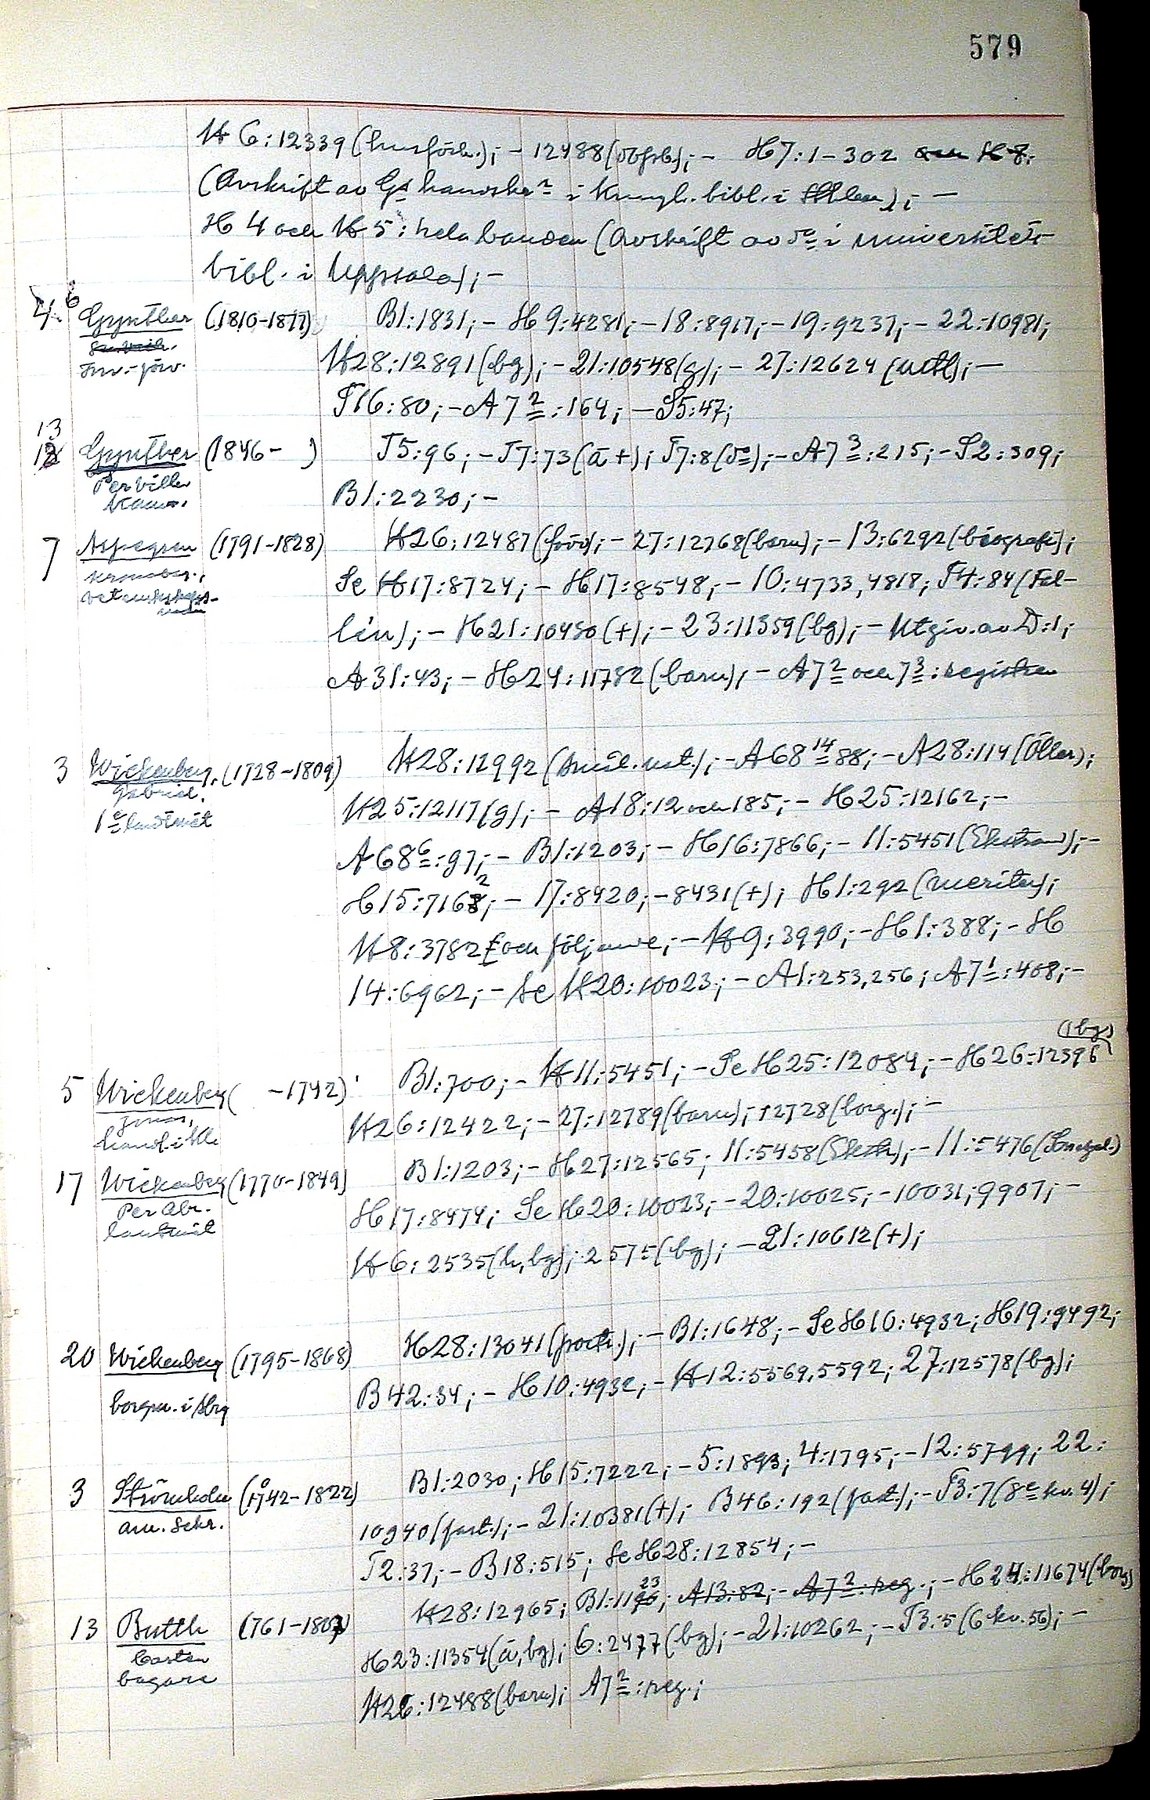 579
H 6:12339 (husförh.); - 12488 (); - H7:1-302
(Avskrift av i Kungl. bibl. i ); -
H 4 och H 5: hela banden (Avskrift av do i universitets
bibl. i Uppsala); -
6 Gynther (1810-1877) B1:1831; - H 9:4281; - 18:8917; - 19:9237; - 22:10981;
H28:12891 (bg); - 21:10548 (g); - 27:12624 (); -
T16:80; - A 7 2:164; - S5:47;
13
Gynther (1846- ) T5:96; - T7:73 (a +); T7:8 (do); - A7 3:215; - S2:309;
Per Vilh.
B1:2230; -
7 Aspegren (1791-1828) H26:12487 (född); - 27:12768 (barn); - 13:6292 (biografi);
Se H17:8724; - H17:8548; - 10:4733, 4818; T4:84 (Fal-
lin); - H21:10450 (+); - 23:11359 (bg); - Utgiv. av D:1;
A31:43; - H24:11782 (barn); - A7 2 och 7 3: registren
3 Wickenberg, (1728-1809) H28:12992 (); - A68 14 88; - A28:114 (Öller);
Gabriel,
1e lantmät
H25:12117 (g); - A18:12 och 185; - H25:12162; -
A 68 6:97; - B1:1203; - H16:7866; - 11:5451 (); -
H15:7162; - 17:8420; - 8431 (+); H1:292 (meriter);
H8:3782 f och följande; - H9:3990; - H1:388; - H
14:6962; - Se H20:10023; - A1:253, 256; A7 1:408; -
(bg)
5 Wickenberg ( -1742) B1:700; - H11:5451; - Se H25:12084; - H26:12396
Jonas,
H26:12422; - 27:12789 (barn); 12728 (borg.); -
17 Wickenberg (1770-1849) B1:1203; - H27:12565; 11:5458 (); - 11:5476 ()
Per Abr.
lantmät
H17:8474; Se H20:10023; - 20:10025; - 10031; 9907; -
H6:2535 (h, bg); 2575 (bg); - 21:10612 (+);
20 Wickenberg (1795-1868) H28:13041 (); - B1:1648; - Se H10:4932; H19:9492;
borgm. i Sbg
B42:34; - H10:4932; - H12:5569, 5592; 27:12578 (bg);
3 Strömholm (1742-1822) B1:2030; H15:7222; - 5:1893; 4:1795; - 12:5799; 22:
am. sekr.
10940 (fast.); - 21:10381 (+); B46:192 (fast.); - T3:7 (8e kv. 4);
T2:37; - B18:515; Se H28:12854; -
13 Butth (1761-1807) H28:12965; B1:1123; A13:82; - A7 2: reg.; - H24:11674 (borg)
Carsten
bagare
H23:11354 (a, bg); 6:2477 (bg); - 21:10262; - T3:5 (6 kv. 56); -
H26:12488 (barn); A7 2: reg.;